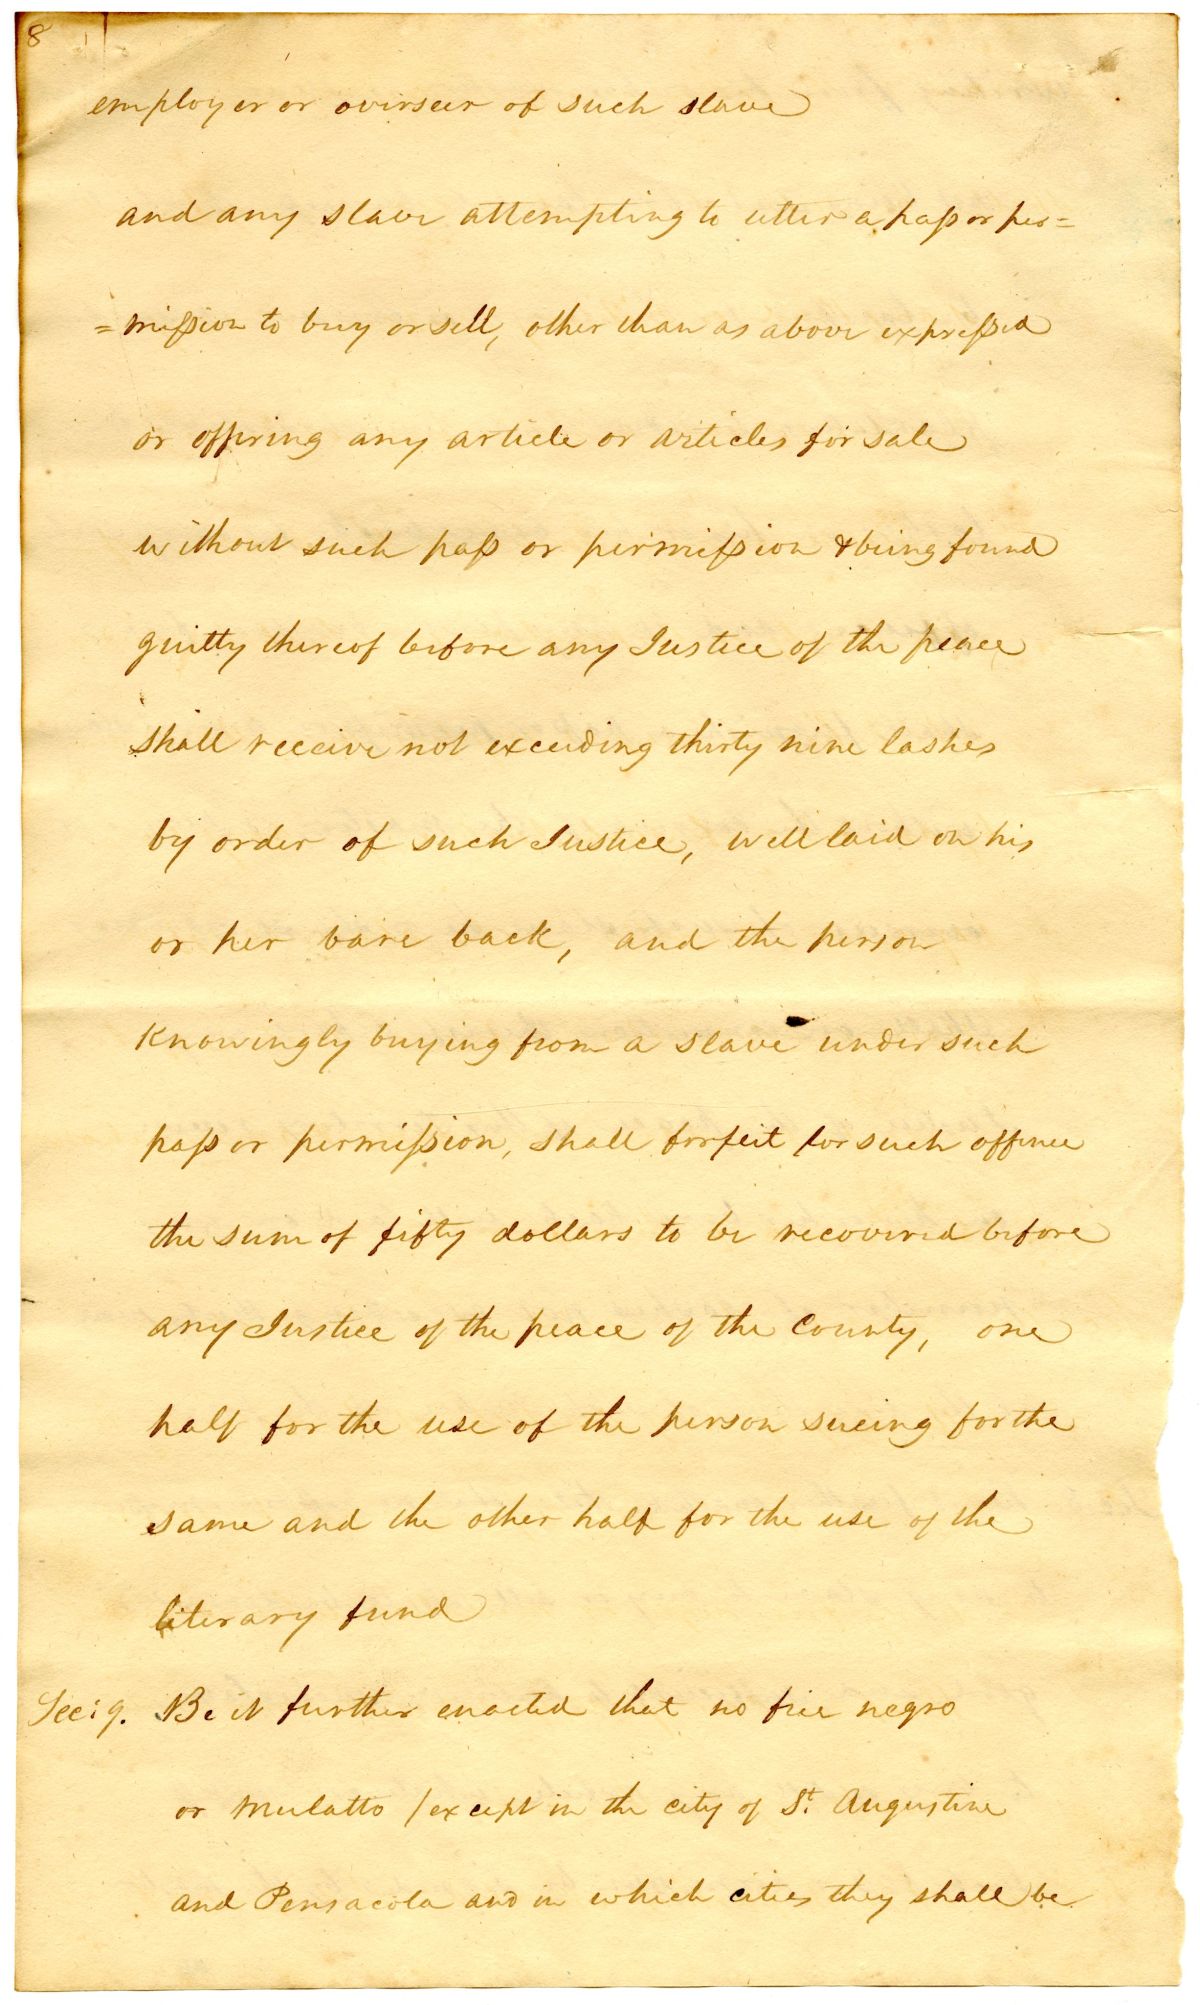 8
employer or overseer of such slave
and any slave attempting to utter a pass or per=
=mission to buy or sell, other than as above expressed
or offering any article or articles for sale
without such pass or permission & being found
guilty thereof before any Justice of the peace
shall receive not exceeding thirty nine lashes
by order of such Justice, well laid on his
or her bare back, and the person
knowingly buying from a slave under such
pass or permission, shall forfeit for such offence
the sum of fifty dollars to be recovered before
any Justice of the peace of the County, one
half for the use of the person sueing for the
same and the other half for the use of the
literary fund
Sec: 9. Be it further enacted that no free negro
or Mulatto /except in the city of St. Augustine
and Pensacola and in which cities they shall be